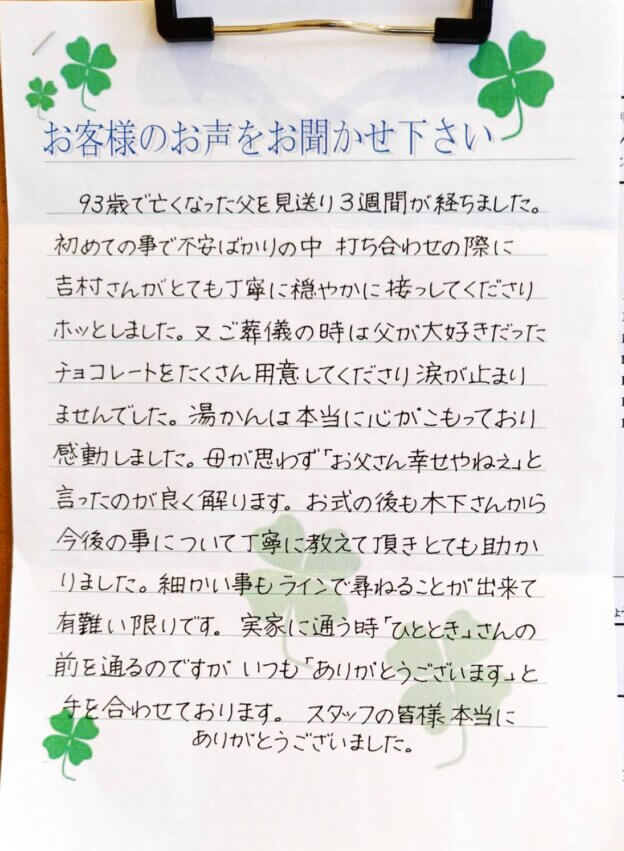 お客様のお声をお聞かせ下さい
93歳で亡くなった父を見送り3週間が経ちました。
初めての事で不安ばかりの中 打ち合わせの際に
吉村さんがとても丁寧に穏やかに接っしてくださり
ホッとしました。又ご葬儀の時は父が大好きだった
チョコレートをたくさん用意してくださり涙が止まり
ませんでした。湯かんは本当に心がこもっており
感動しました。母が思わず「お父さん幸せやねえ」と
言ったのが良く解ります。お式の後も木下さんから
今後の事について丁寧に教えて頂きとても助か
りました。細かい事もラインで尋ねることが出来て
有難い限りです。実家に通う時「ひととき」さんの
前を通るのですが いつも「ありがとうございます」と
手を合わせております。 スタッフの皆様本当に
ありがとうございました。